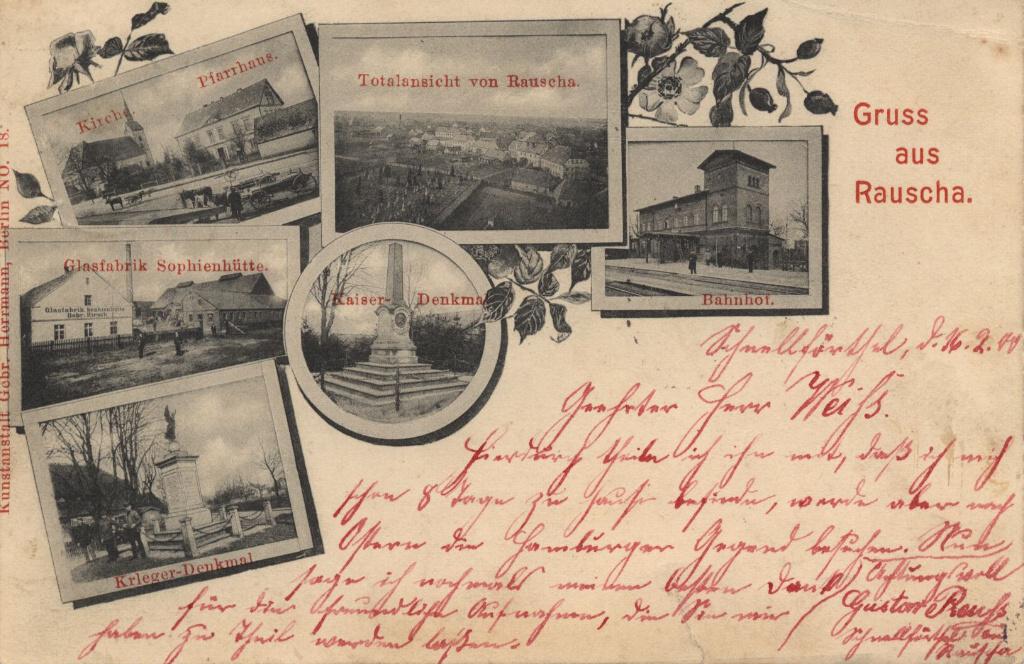 Kirche.
Pfarrhaus.
Totalansicht von Rauscha.
Gruss
aus
Rauscha.
Glasfabrik Sophienhütte.
Glasfabrik Sophienhütte
Gebr. Hirsch.
Kaiser-Denkmal
Bahnhof.
Krieger-Denkmal
Kunstanstalt Gebr. Herrmann, Berlin NO. 18.
Schnellförthel, d. 16.2.00
Geehrter Herr Weiss.
Hierdurch theile ich ihn mit, daß ich mich
schon 8 Tage zu Hause befinde, werde aber nach
Ostern die Hamburger Gegend besuchen. Nun
sage ich nochmals meinen besten Dank
für die freundliche Aufnahme, die Sie mir
haben zu Theil werden lassen.
Achtungsvoll
Gustav
Schnellförthel
Rauscha